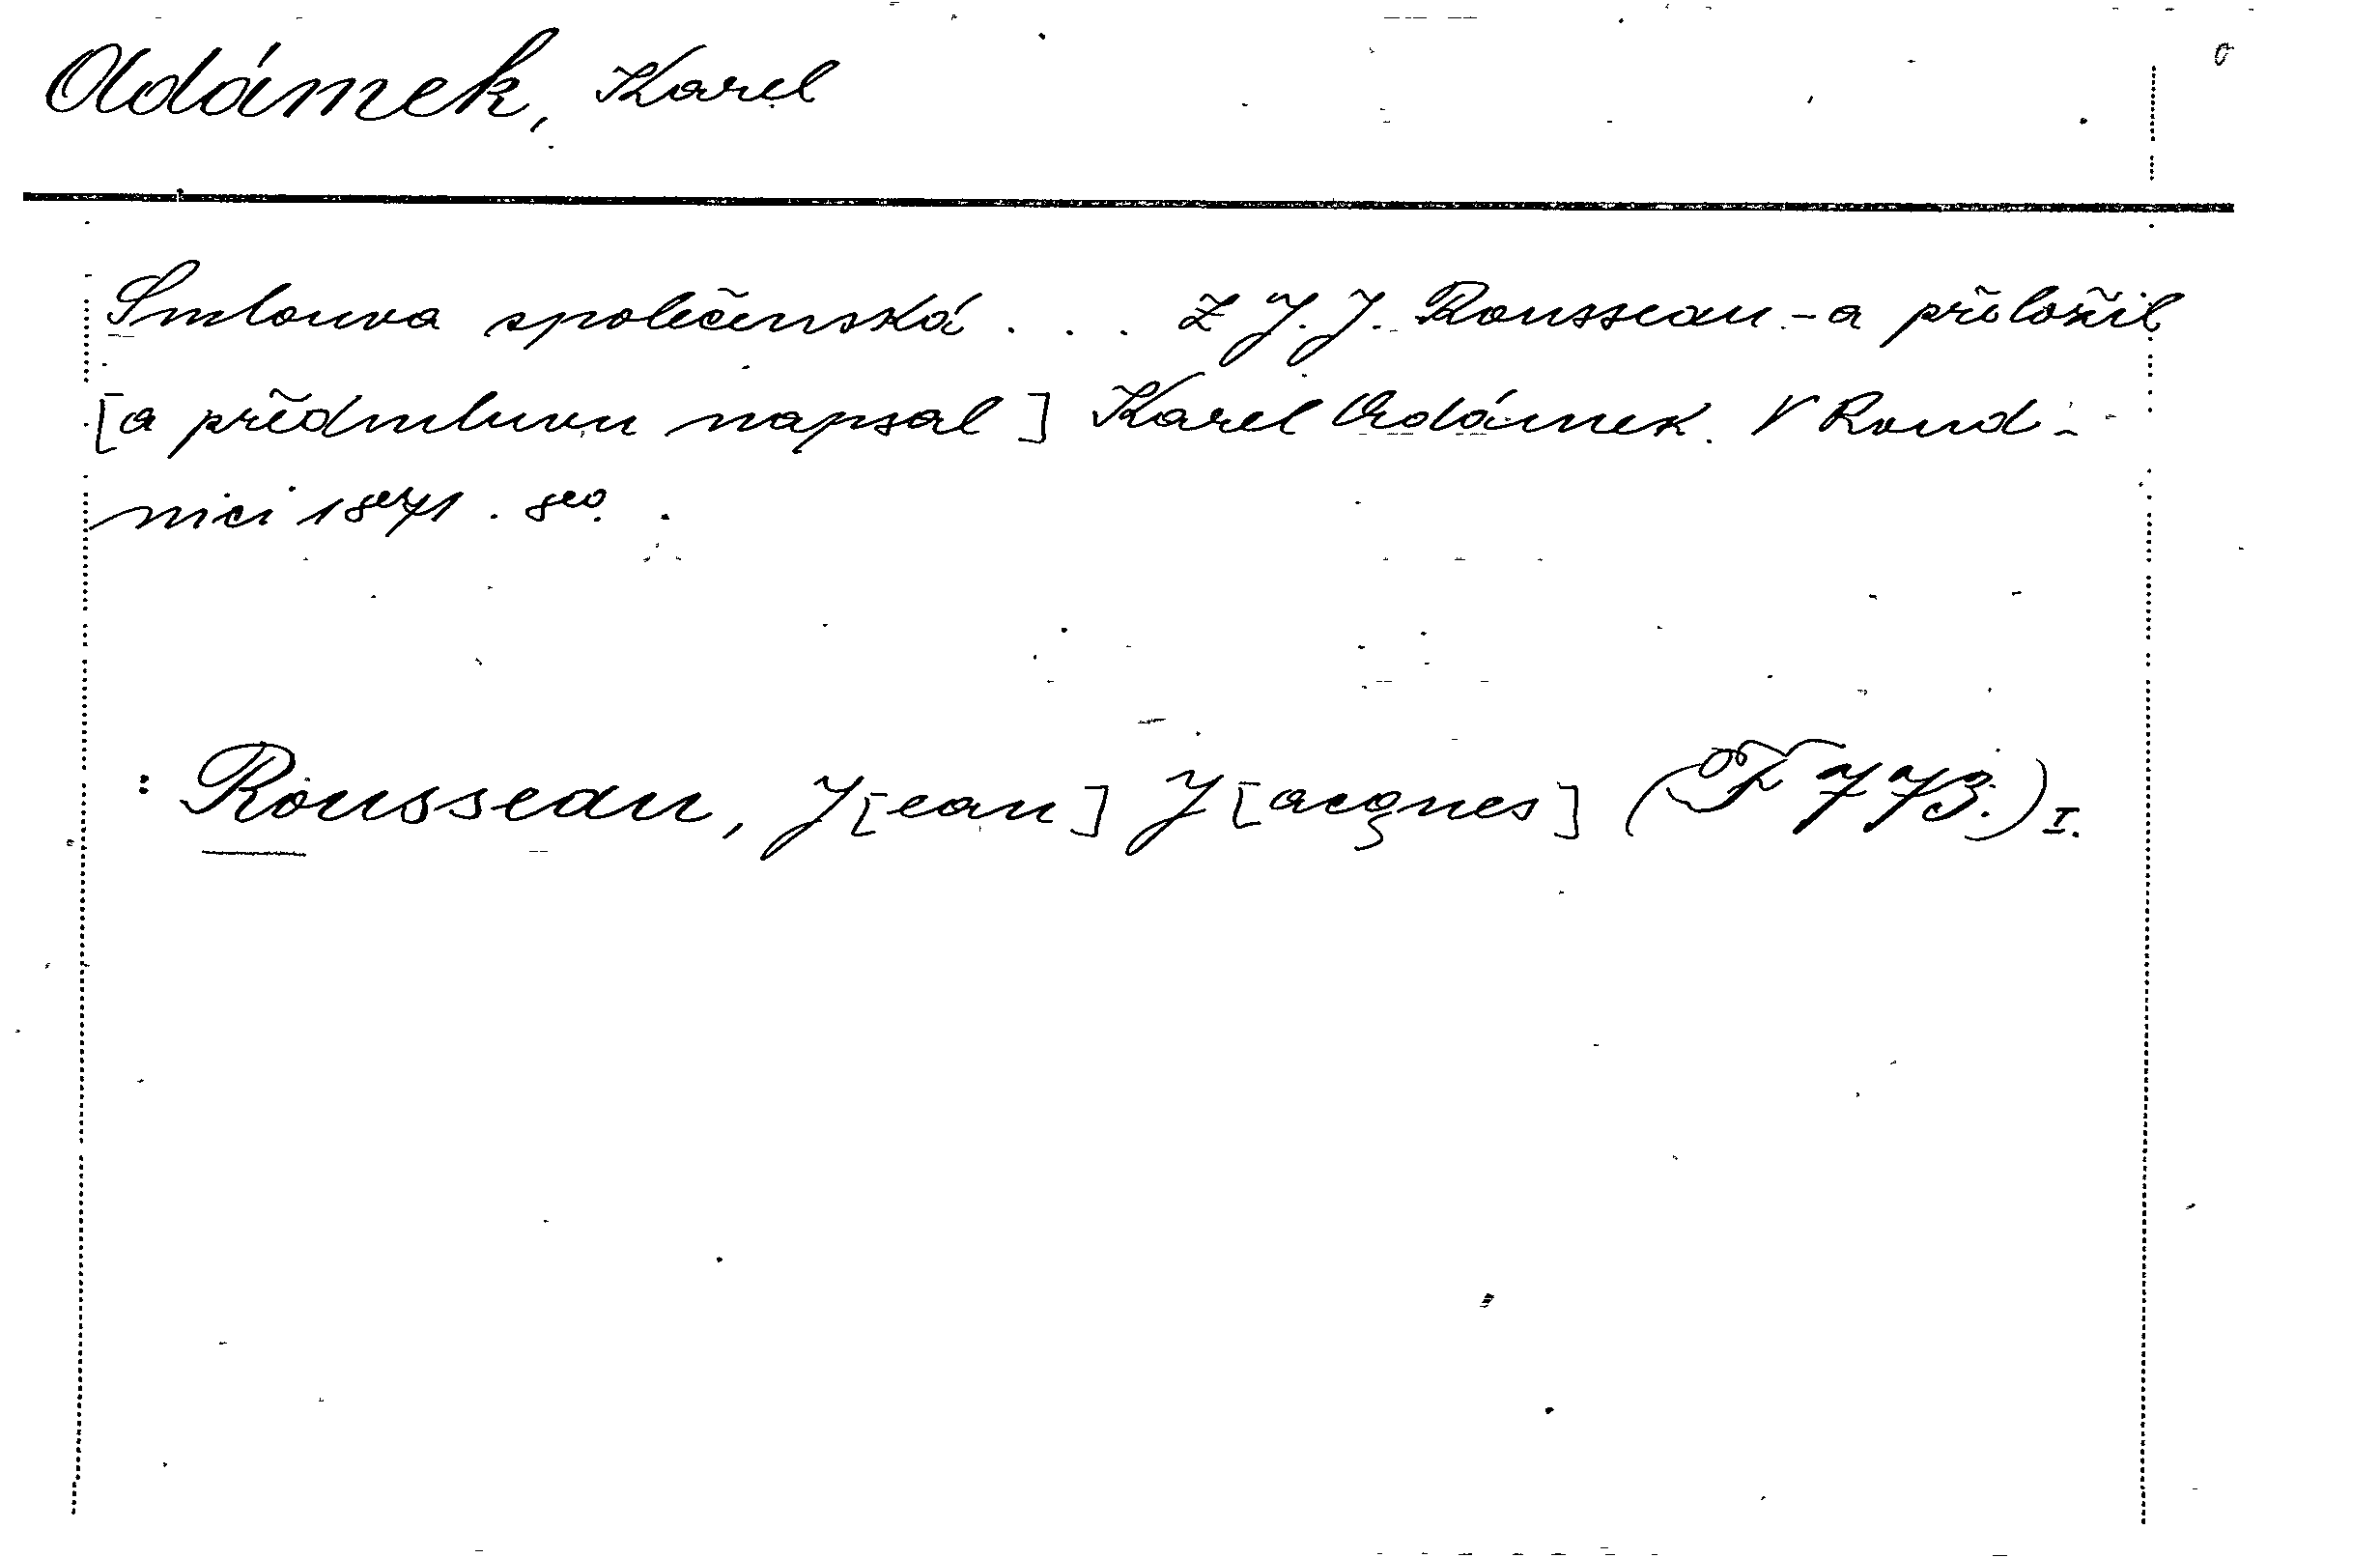 Adámek, Karel
Smlouva společenská ... z J. J. Rousseau-a přeložil
[a předmluvu napsal] Karel Adámek. V Roud-
nici 1871. 8o.
: Rousseau, J[ean] J[acques] (F 773.) I.